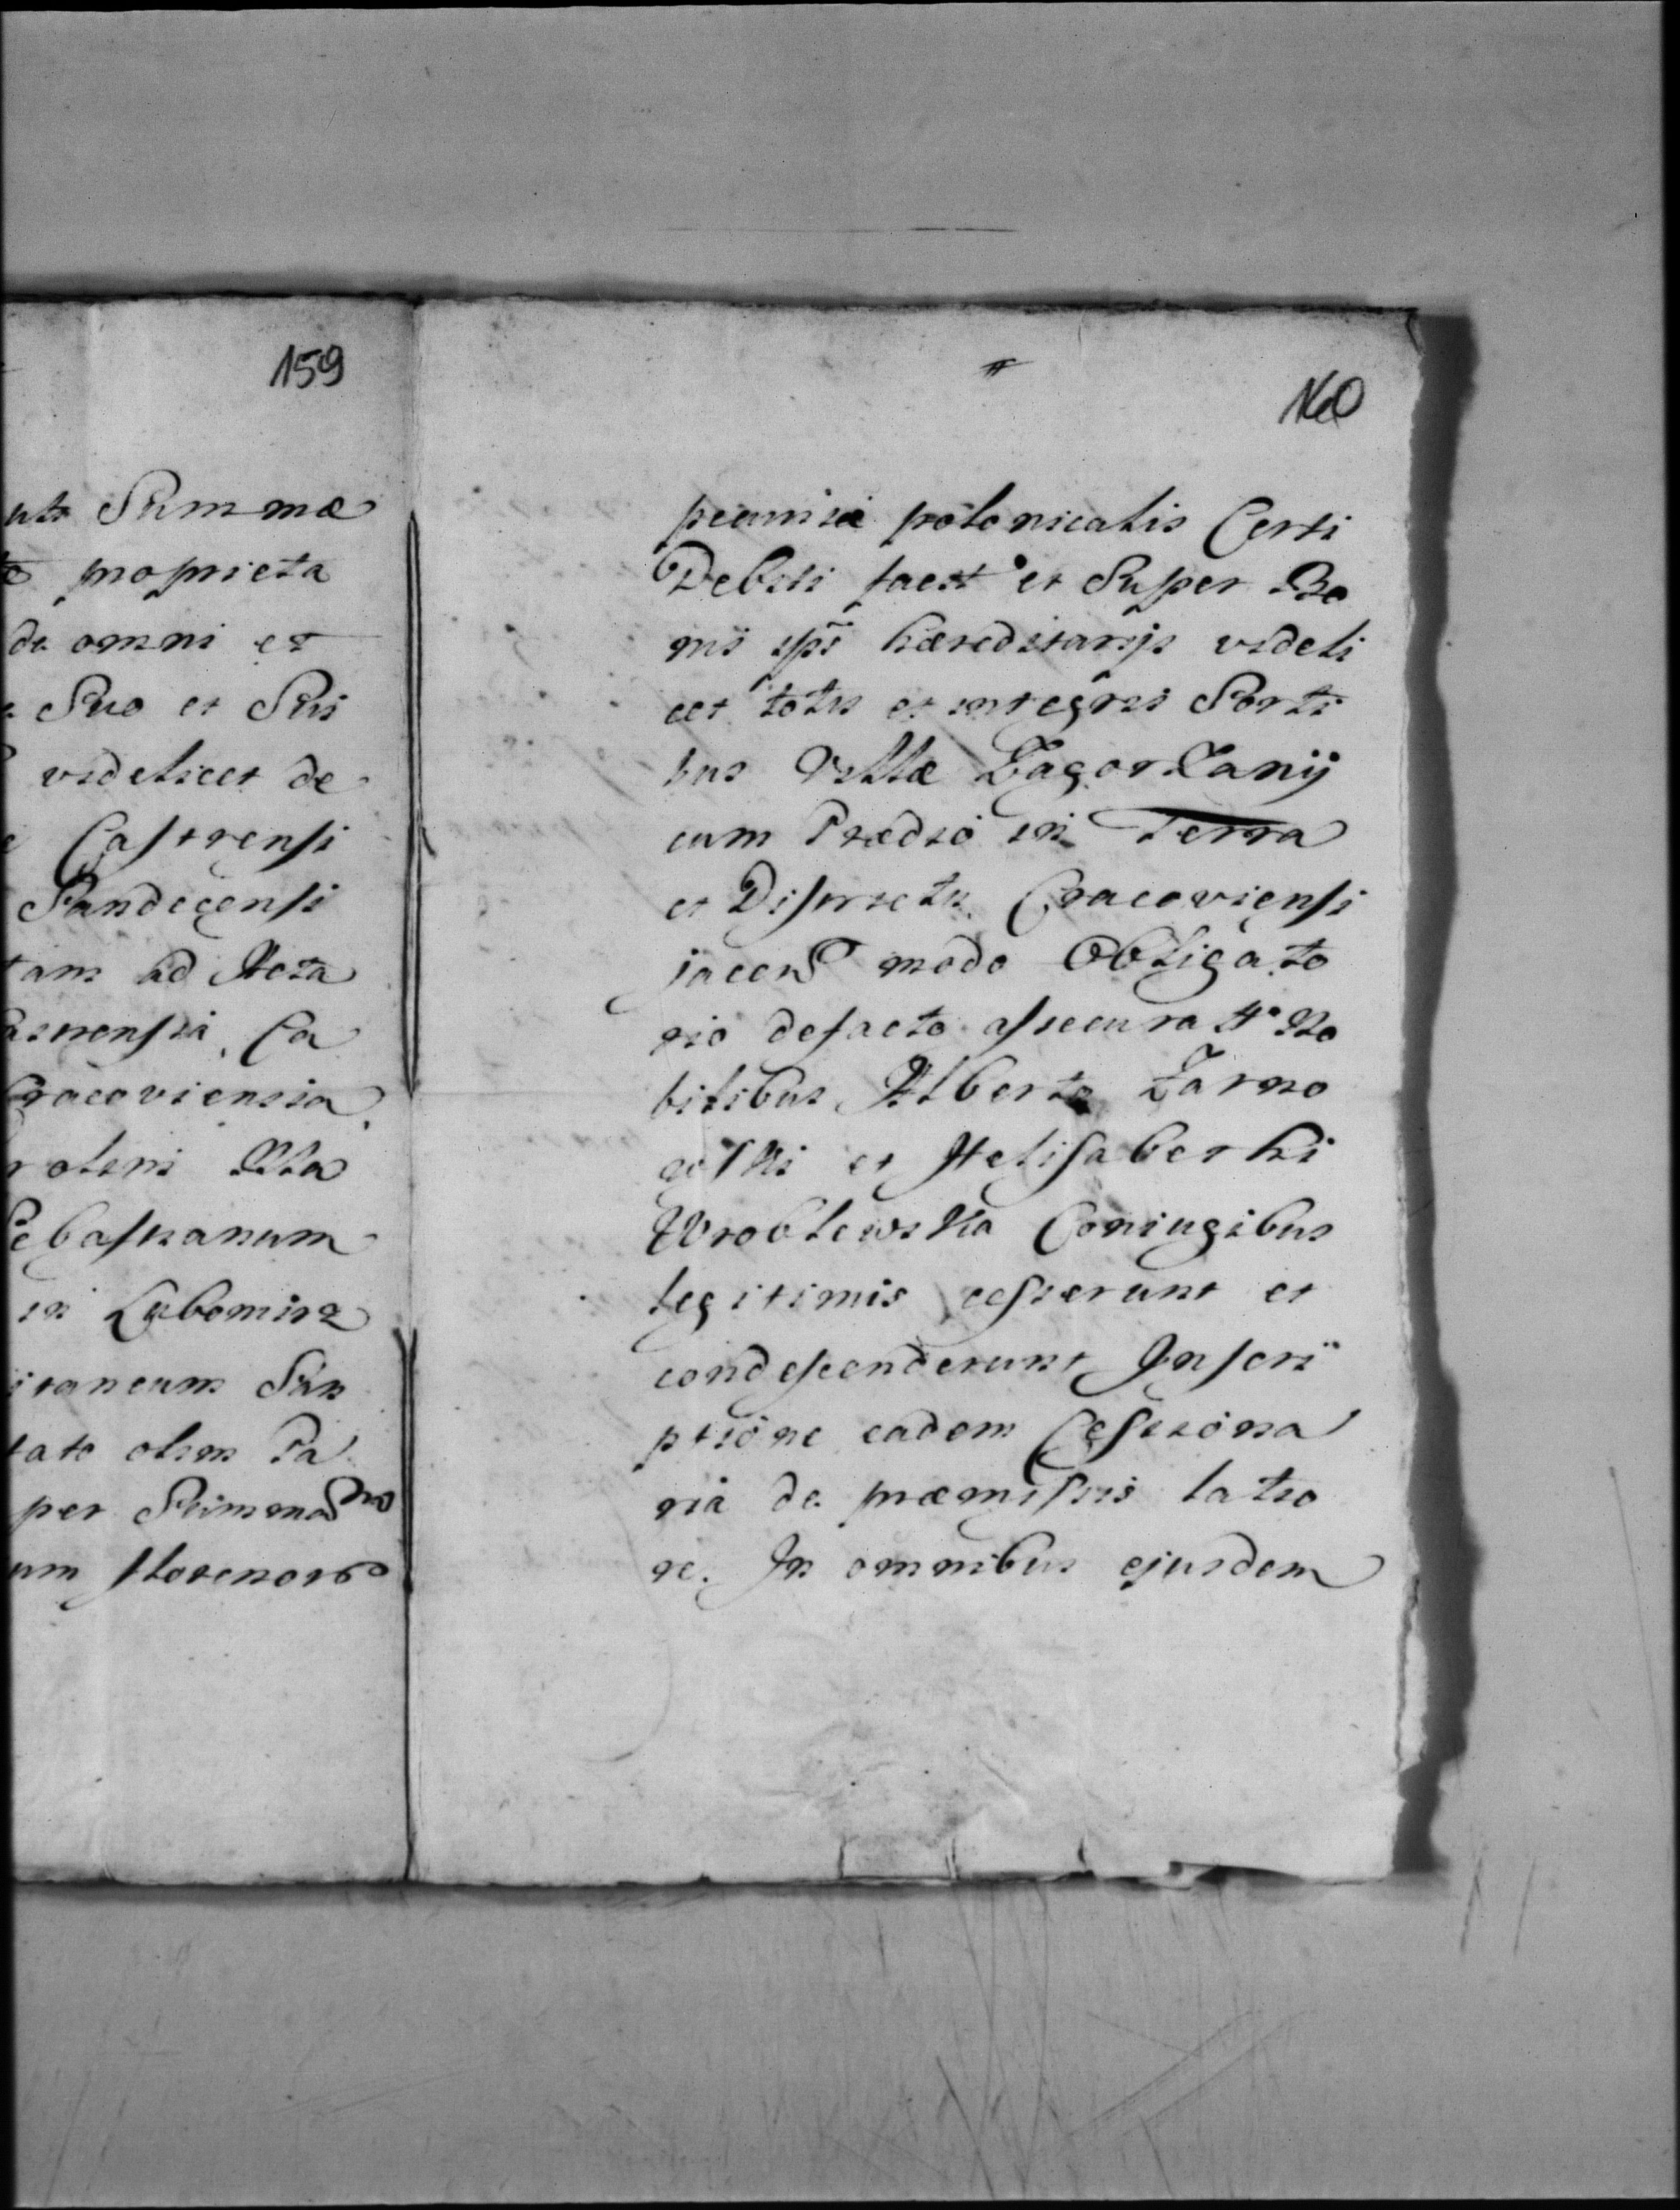 159
uto Summæ
proprieta
de omni et
Suo et Suis
videlicet de
Castrensi
Sandecensi
tam ad Acta
Ca
Cracoviensia
olim
Sebastianum
in Lubomirz
itaneum Sum
tato olim Pa
per
um florenor
160
pecuniæ polonicalis Certi
Debiti fact et Super Bo
nis ipsi hæreditarijs videli
cet totis et integris Sorti
bus Villæ Zagorzanÿ
cum Prædio in Terra
et Districtu Cracoviensi
jacen modo Obligato
rio defacto assecurat No
bilibus Alberto Zarno
wski et Helisabethi
Wroblewska Coniugibus
legitimis cesserunt et
condescenderunt Inscri
ptione eadem Cessiona
ria de præmissis latio
re. In omnibus ejusdem